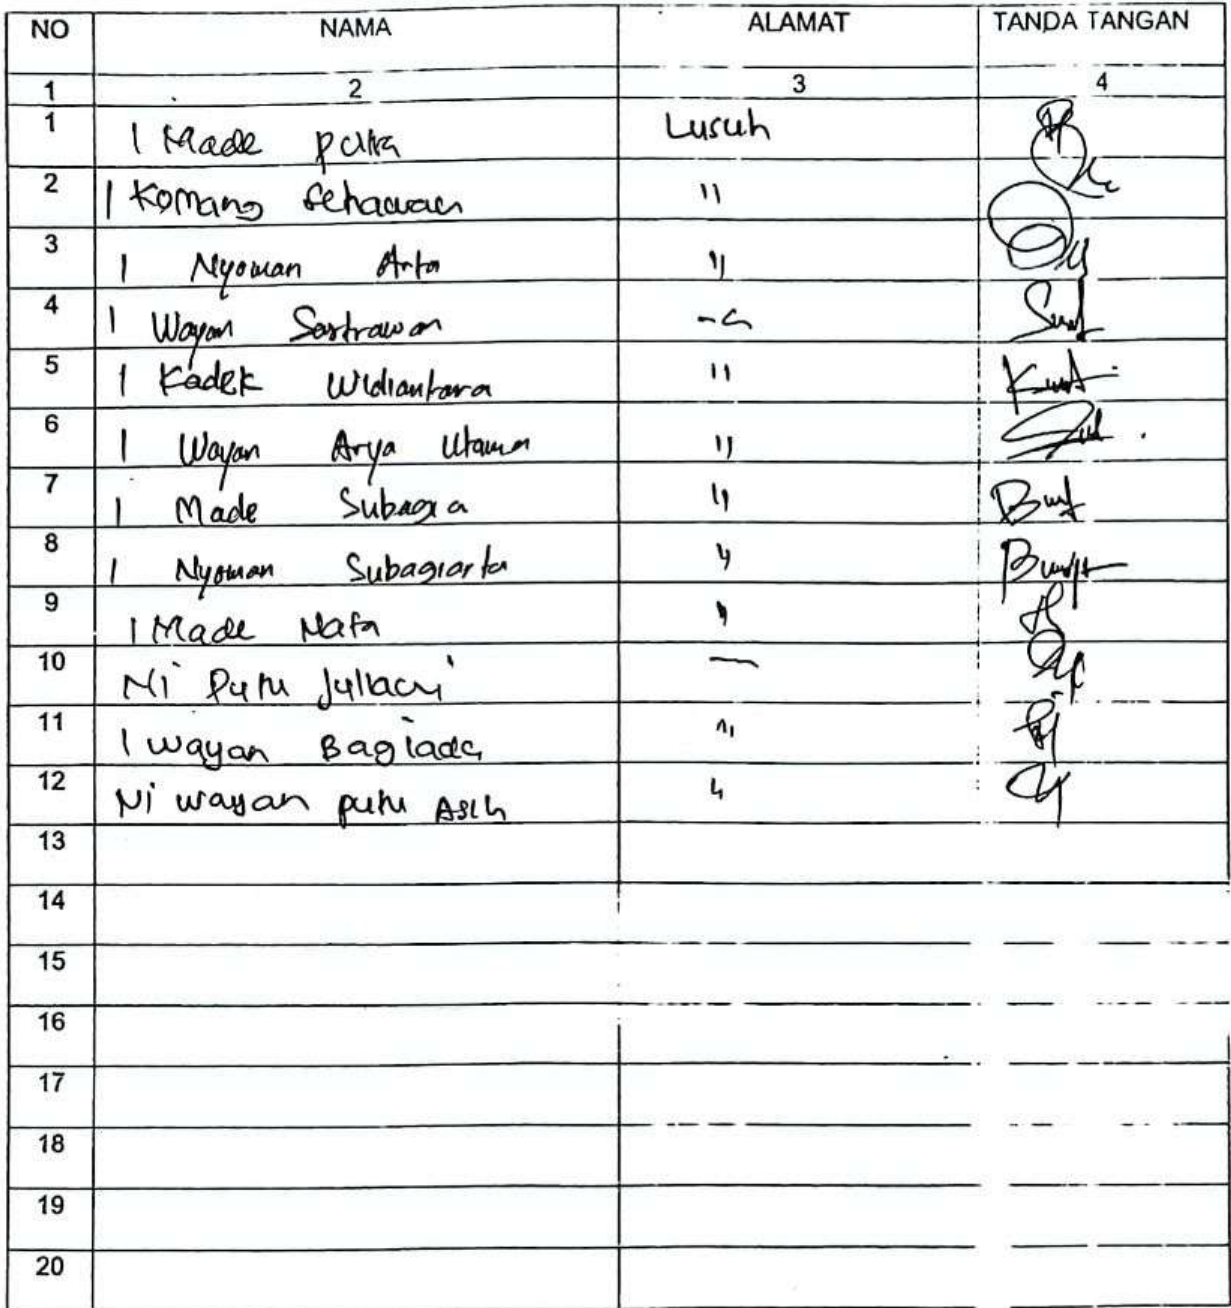 NO NAMA ALAMAT TANDA TANGAN
1 2 3 4
1 I Made putra Lusuh
2 I Komang Setiawan "
3 I Nyoman Arta "
4 I Wayan Sastrawan
5 I Kadek Widiantara "
6 I Wayan Arya Utama "
7 I Made Subagia "
8 I Nyoman Subagiarta "
9 I Made Nata "
10 Ni Putu
11 I wayan Bagiada "
12 Ni wayan putu Asih "
13
14
15
16
17
18
19
20